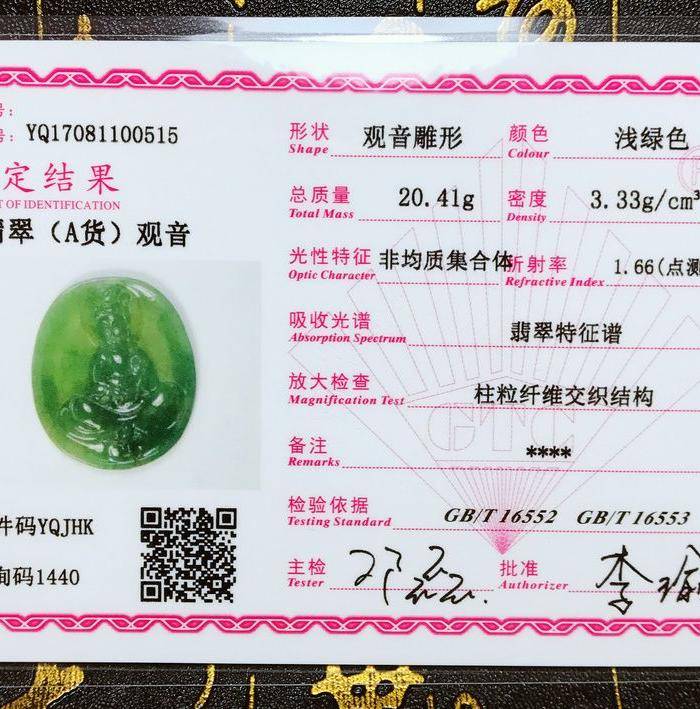 号：
号： YQ17081100515
定结果
T OF IDENTIFICATION
翡翠（A货）观音
件码YQJHK
询码1440
形状 观音雕形 颜色 浅绿色
Shape Colour
总质量 20.41g 密度 3.33g/cm³
Total Mass Density
光性特征 非均质集合体 折射率 1.66(点测
Optic Character Refractive Index
吸收光谱 翡翠特征谱
Absorption Spectrum
放大检查 柱粒纤维交织结构
Magnification Test
备注 ****
Remarks
GTC
检验依据 GB/T 16552 GB/T 16553
Testing Standard
主检 批准 李
Tester Authorizer